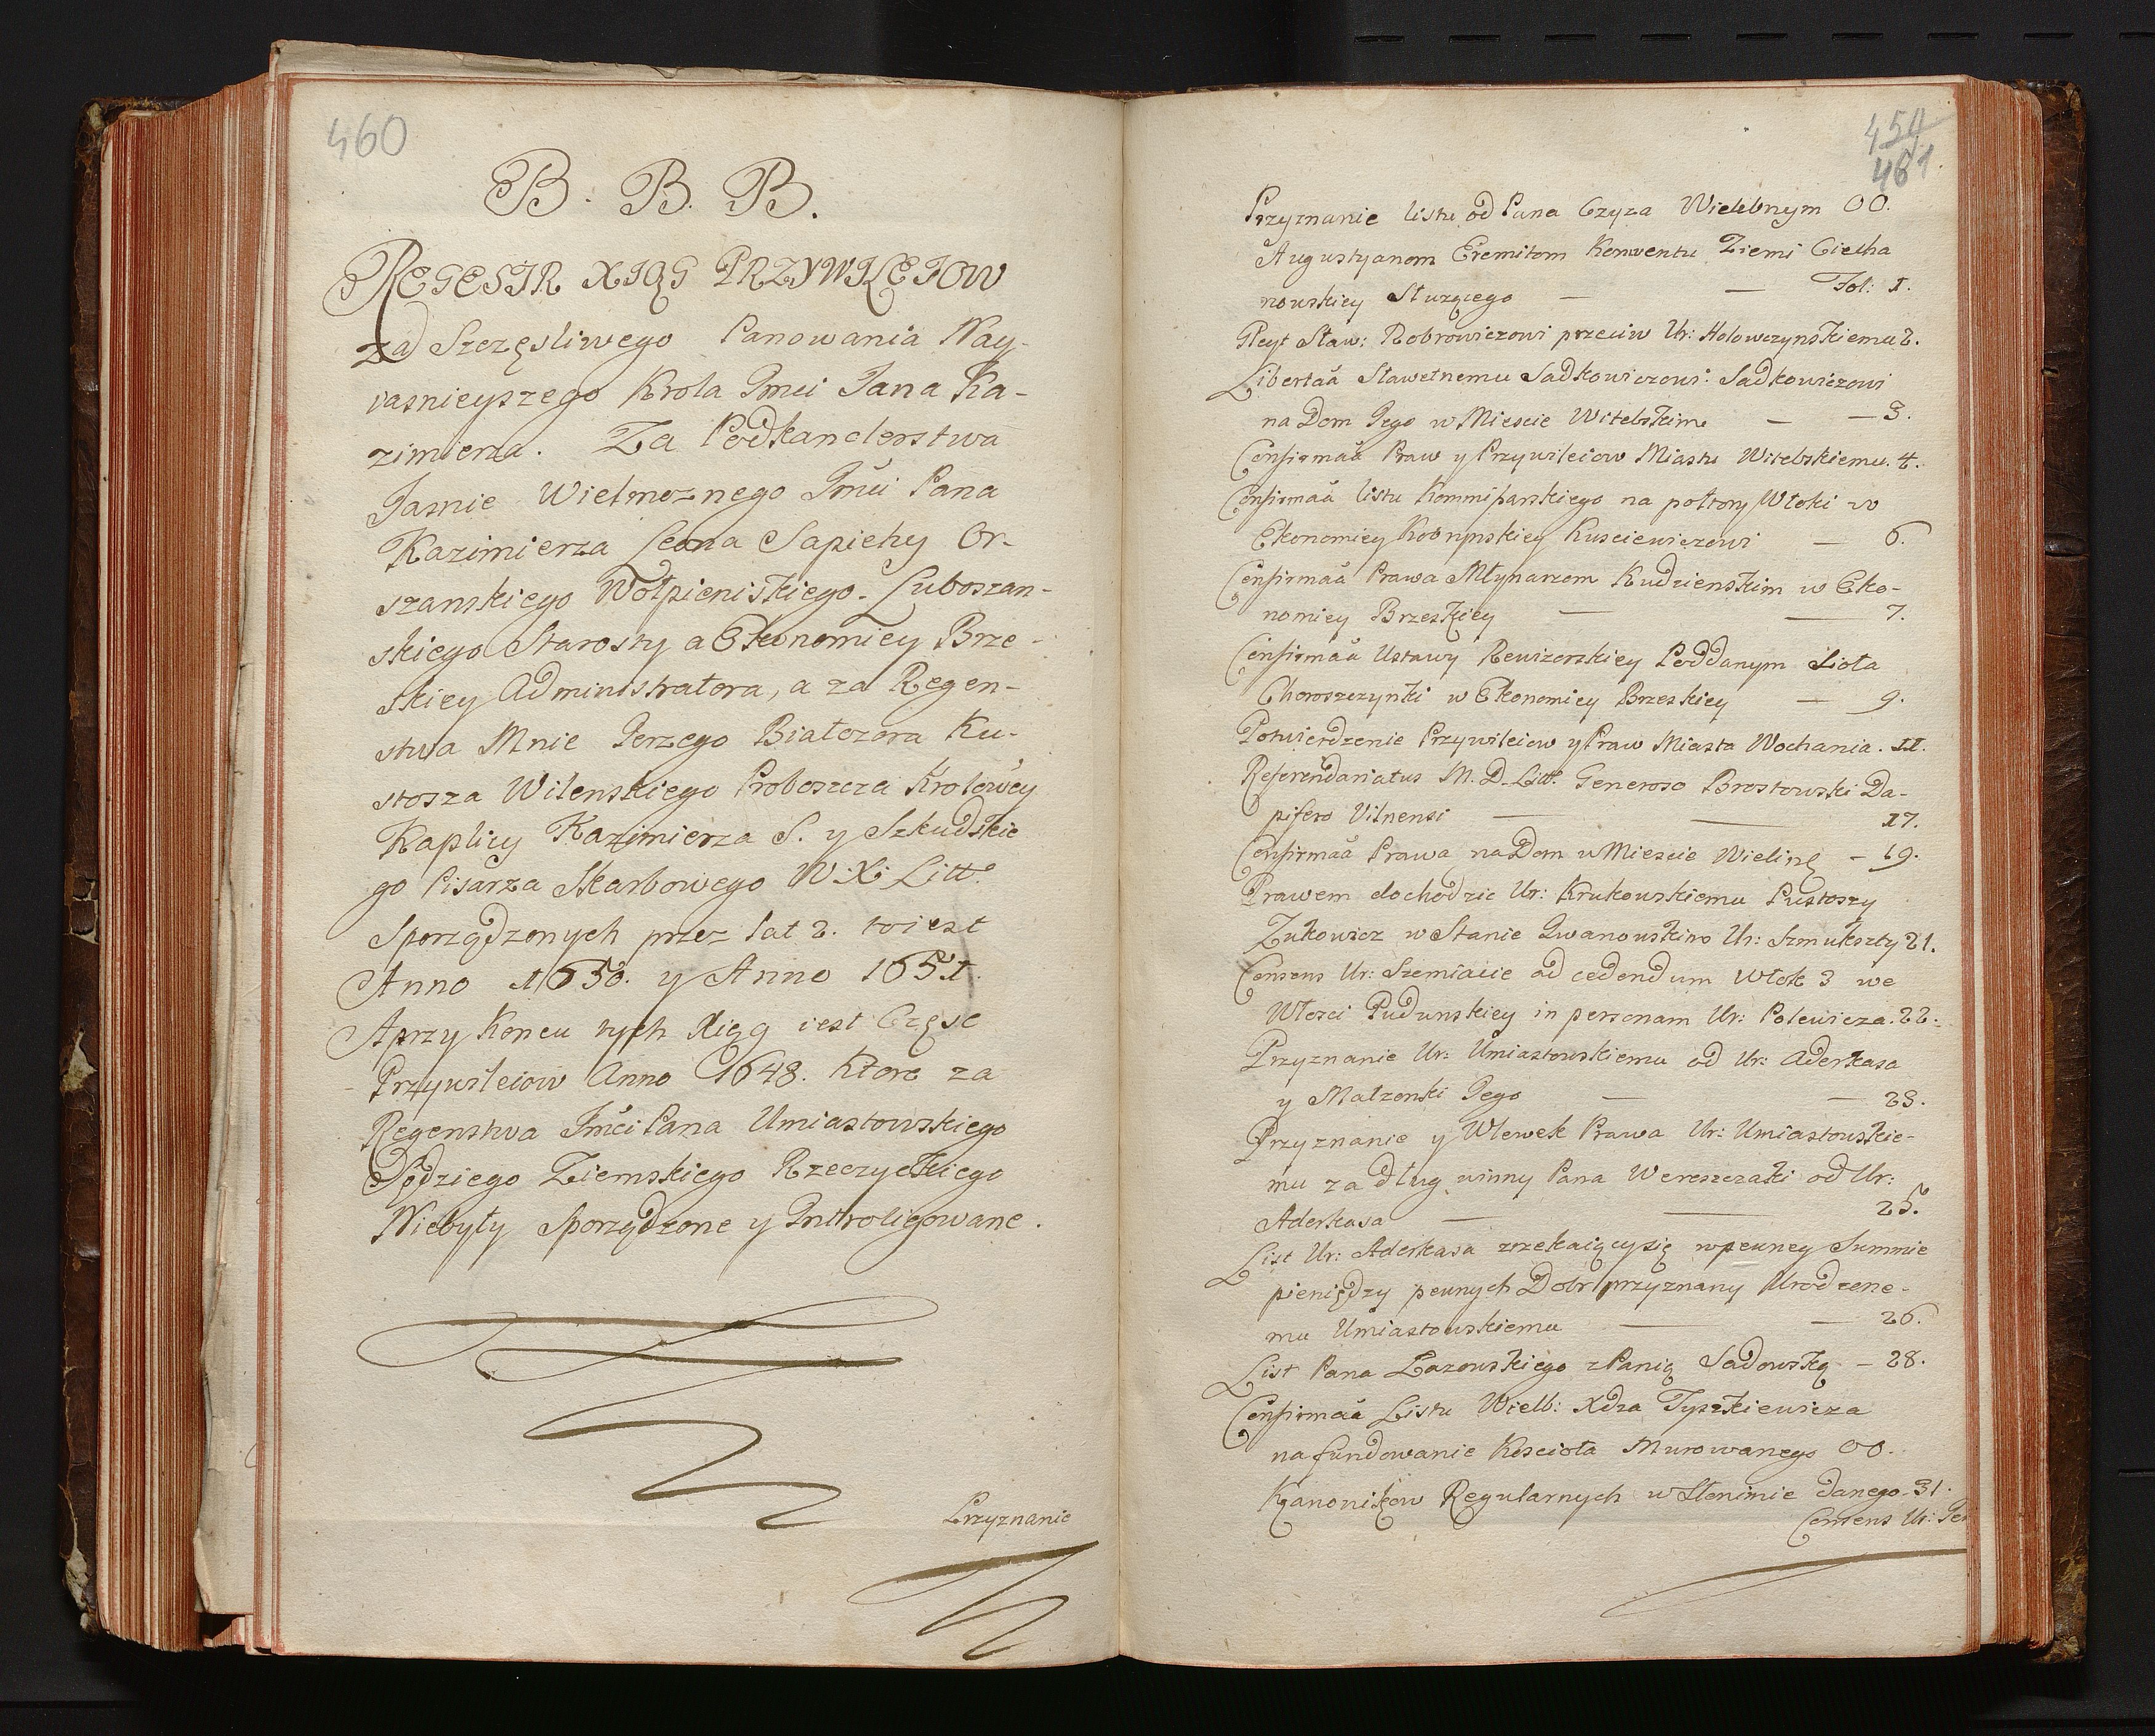 460
B. B. B.
REGESTR XIĄG PRZYWILEIOW
Za Szczęsliwego Panowania Nay-
iasnieyszego Krola Jmci Jana Ka-
zimierza. Za Podkanclerstwa
Jasnie Wielmoznego Jmći Pana
Kazimierza Leona Sapiehy Or-
szanskiego Wołpieniskiego. Luboszan-
skiego Starosty a Ekonomiey Brze-
skiey Administratora, a za Regen-
stwa Mnie Jerzego Białozora Ku-
stosza Wilenskiego Proboszcza Krolowey
Kaplicy Kazimierza S. y Szkudskie
go Pisarza Skarbowego W: X: Litt.
Sporządzonych przez lat 2. to iest
Anno 1650. y Anno 1651.
A przy Koncu tych Xiąg iest Częsc
Przywileiow Anno 1648. Ktore za
Regenstwa Jmći Pana Umiastowskiego
Sędziego Ziemskiego Rzeczyckiego
Niebyły Sporządzone y Introligowane.
Przyznanie
454
461.
Przyznanie listu od Pana Czyza Wielebnym OO.
Augustyanom Eremitom Konwentu Ziemi Ciecha
nowskiey Słuzącego — — Fol: 1.
Gleyt Sław: Bobrowiczowi przeciw Ur: Holowczynskiemu 2.
Libertaã Sławetnemu Sadkowiczowi: Sadkowiczowi
na Dom Jego w Miescie Witebskim — — 3.
Confirmaã Praw y Przywileiow Miastu Witebskiemu. 4.
Confirmaã listu Kommissarskiego na połtory Włoki w
Ekonomiey Kobrynskiey Kusciewiczowi — 6.
Confirmaã Prawa Młynarzom Kudzienskim w Eko-
nomiey Brzeskiey — — 7.
Confirmaã Ustawy Rewizorskiey Poddanym Sioła
Choroszczynki w Ekonomiey Brzeskiey — 9.
Potwierdzenie Przywileiow y Praw Miasta Wochania. 11.
Referendariatus M. D. Litt. Generoso Brostowski Da-
pifero Vilnensi — — 17.
Confirmaã Prawa na Dom w Miescie Wielinę — 19.
Prawem dochodzic Ur: Krukowskiemu Pustoszy
Zukowicz w Stanie Iwanowskim Ur: Szmukszty 21.
Consens Ur: Szemiacie ad cedendum Włok 3 we
Włosci Pudunskiey in personam Ur: Polewicza. 22.
Przyznanie Ur: Umiastowskiemu od Ur: Aderkasa
y Małzonki Jego — — 23.
Przyznanie y Wlewek Prawa Ur: Umiastowskie-
mu za dług winny Pana Wereszczaki od Ur:
Aderkasa — — 25.
List Ur: Aderkasa zrzekaiącysię w pewney Summie
pieniędzy pewnych Dobr przyznany Urodzone-
mu Umiastowskiemu — — 26.
List Pana Łazowskiego z Panią Sadowską — 28.
Confirmaã Listu Wielb: Xdza Tyszkiewicza
na fundowanie Koscioła Murowanego OO.
Kanonikow Regularnych w Słonimie danego. 31.
Consens Ur: